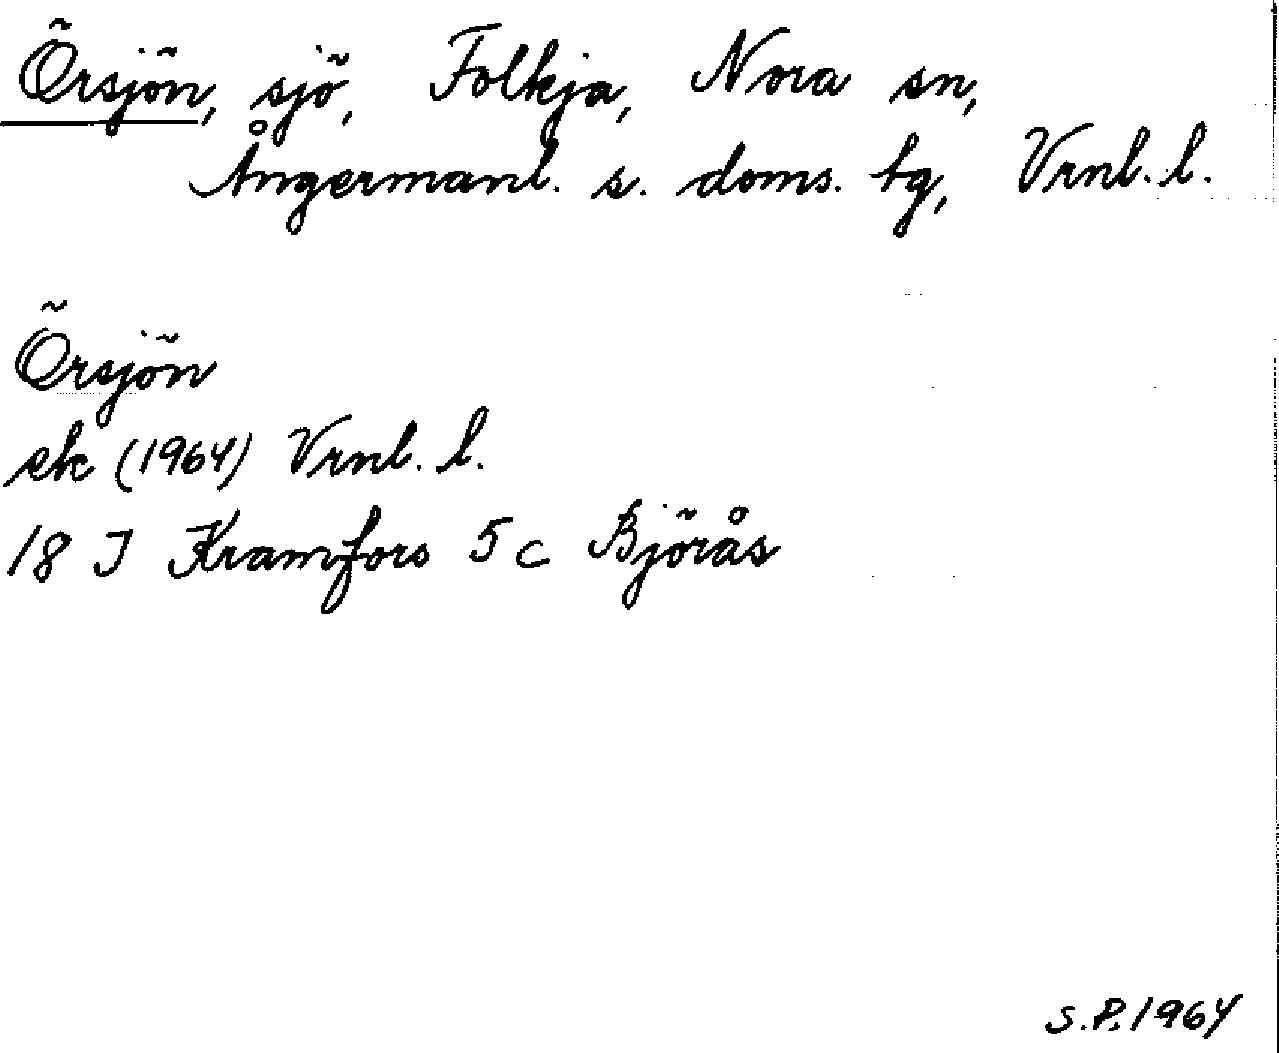 Örsjön, sjö, Folkja, Nora sn,
Ångermanl. s. doms. tg, Vrnl. l.
Örsjön
ek (1964) Vrnl. l.
18 I Kramfors 5 c Björås
S.P. 1964